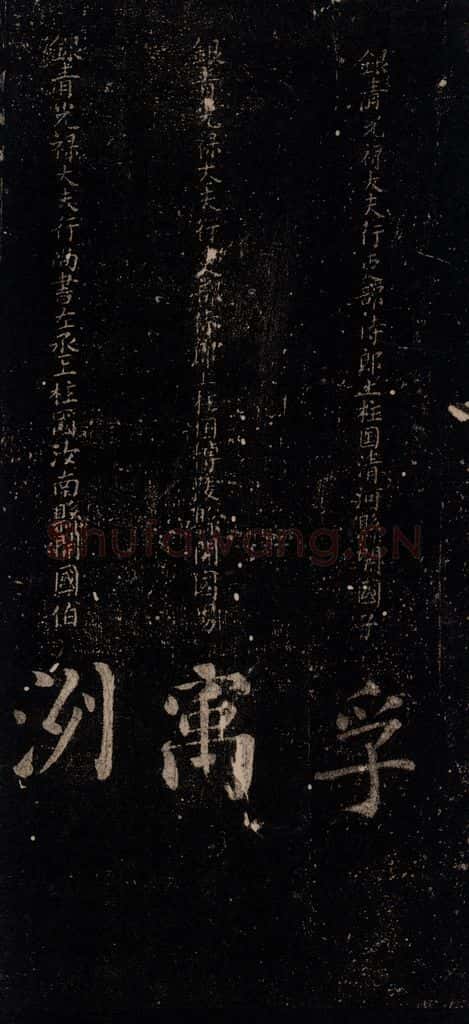 銀青光祿大夫行吏部侍郎上柱國清河縣開國子
孚
銀青光祿大夫行吏部侍郎上柱國博陵縣開國男
寓
銀青光祿大夫行尚書左丞上柱國汝南縣開國伯
洌
Shufawang.CN